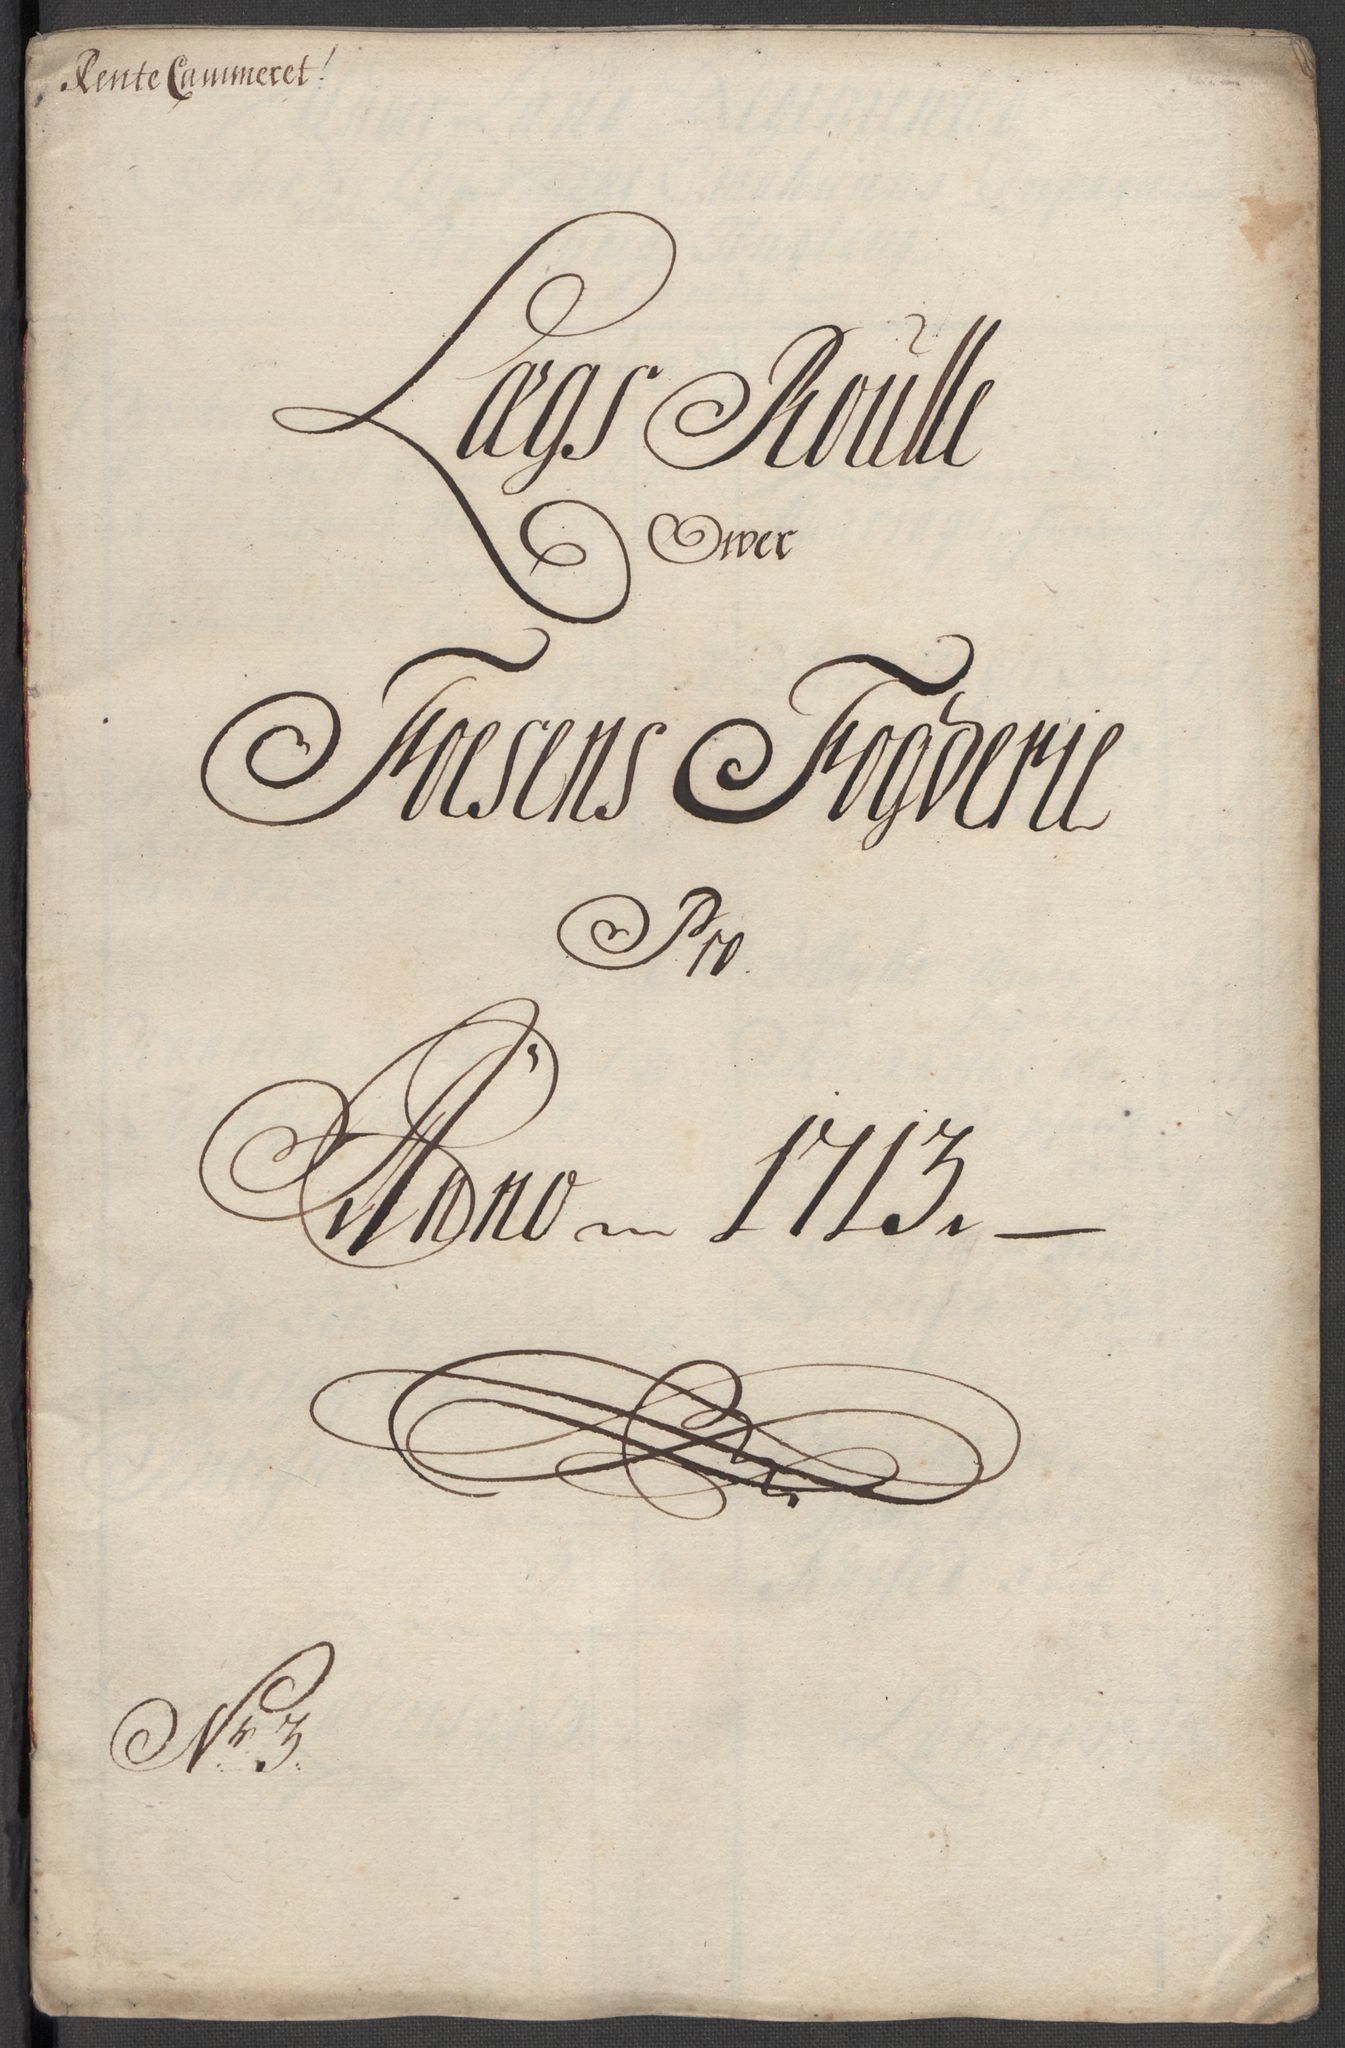 Rente Cammeret!
Lægs Roulle
Over
Foesens Fogderie
Pro
Anno 1713.
Nr. 3.